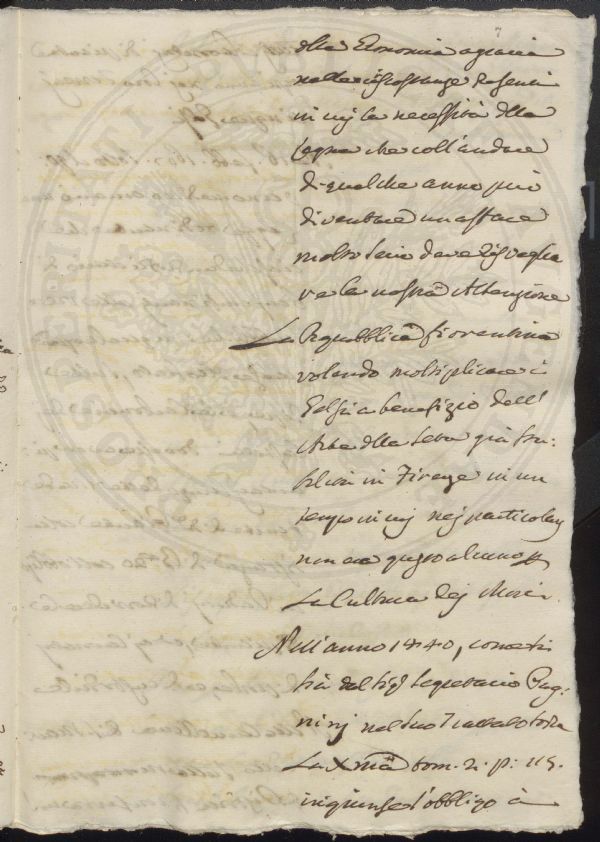 7
della Economia agraria
nelle circostanze presenti
in cui la necessità della
legna che coll'andare
di qualche anno può
diventare un affare
molto serio deve risveglia
re la nostra Attenzione
La Repubblica fiorentina
volendo moltiplicare i
Gelsi a benefizio dell'
Arte della Seta già sta-
bilita in Firenze in un
tempo in cui nei particolari
non era gusto alcuno p
La Cultura dei Mori.
Nell'anno 1440, come si
hà dal Sig.r Segretario Pag-
nini nel suo Trattato sopra
La Xma tom. 2. p: 115.
ingiunse l'obbligo à